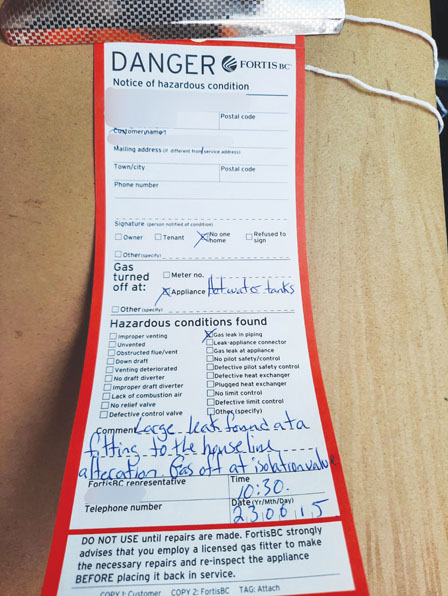 DANGER FORTIS BC
Notice of hazardous condition
Postal code
Customer name
Mailing address (if different from service address)
Town/city Postal code
Phone number
Signature (person notified of condition)
Owner Tenant No one home Refused to sign
Other (specify)
Gas turned off at:
Meter no.
Appliance Hot water tanks
Other (specify)
Hazardous conditions found
Improper venting Gas leak in piping
Unvented Leak-appliance connector
Obstructed flue/vent Gas leak at appliance
Down draft No pilot safety/control
Venting deteriorated Defective pilot safety control
No draft diverter Defective heat exchanger
Improper draft diverter Plugged heat exchanger
Lack of combustion air No limit control
No relief valve Defective limit control
Defective control valve Other (specify)
Comment Large leak found at a
fitting to the house line
alteration. Gas off at isolation valve
FortisBC representative Time
10:30.
Telephone number Date (Yr/Mth/Day)
23 06 15
DO NOT USE until repairs are made. FortisBC strongly
advises that you employ a licensed gas fitter to make
the necessary repairs and re-inspect the appliance
BEFORE placing it back in service.
COPY 1: Customer COPY 2: FortisBC TAG: Attach